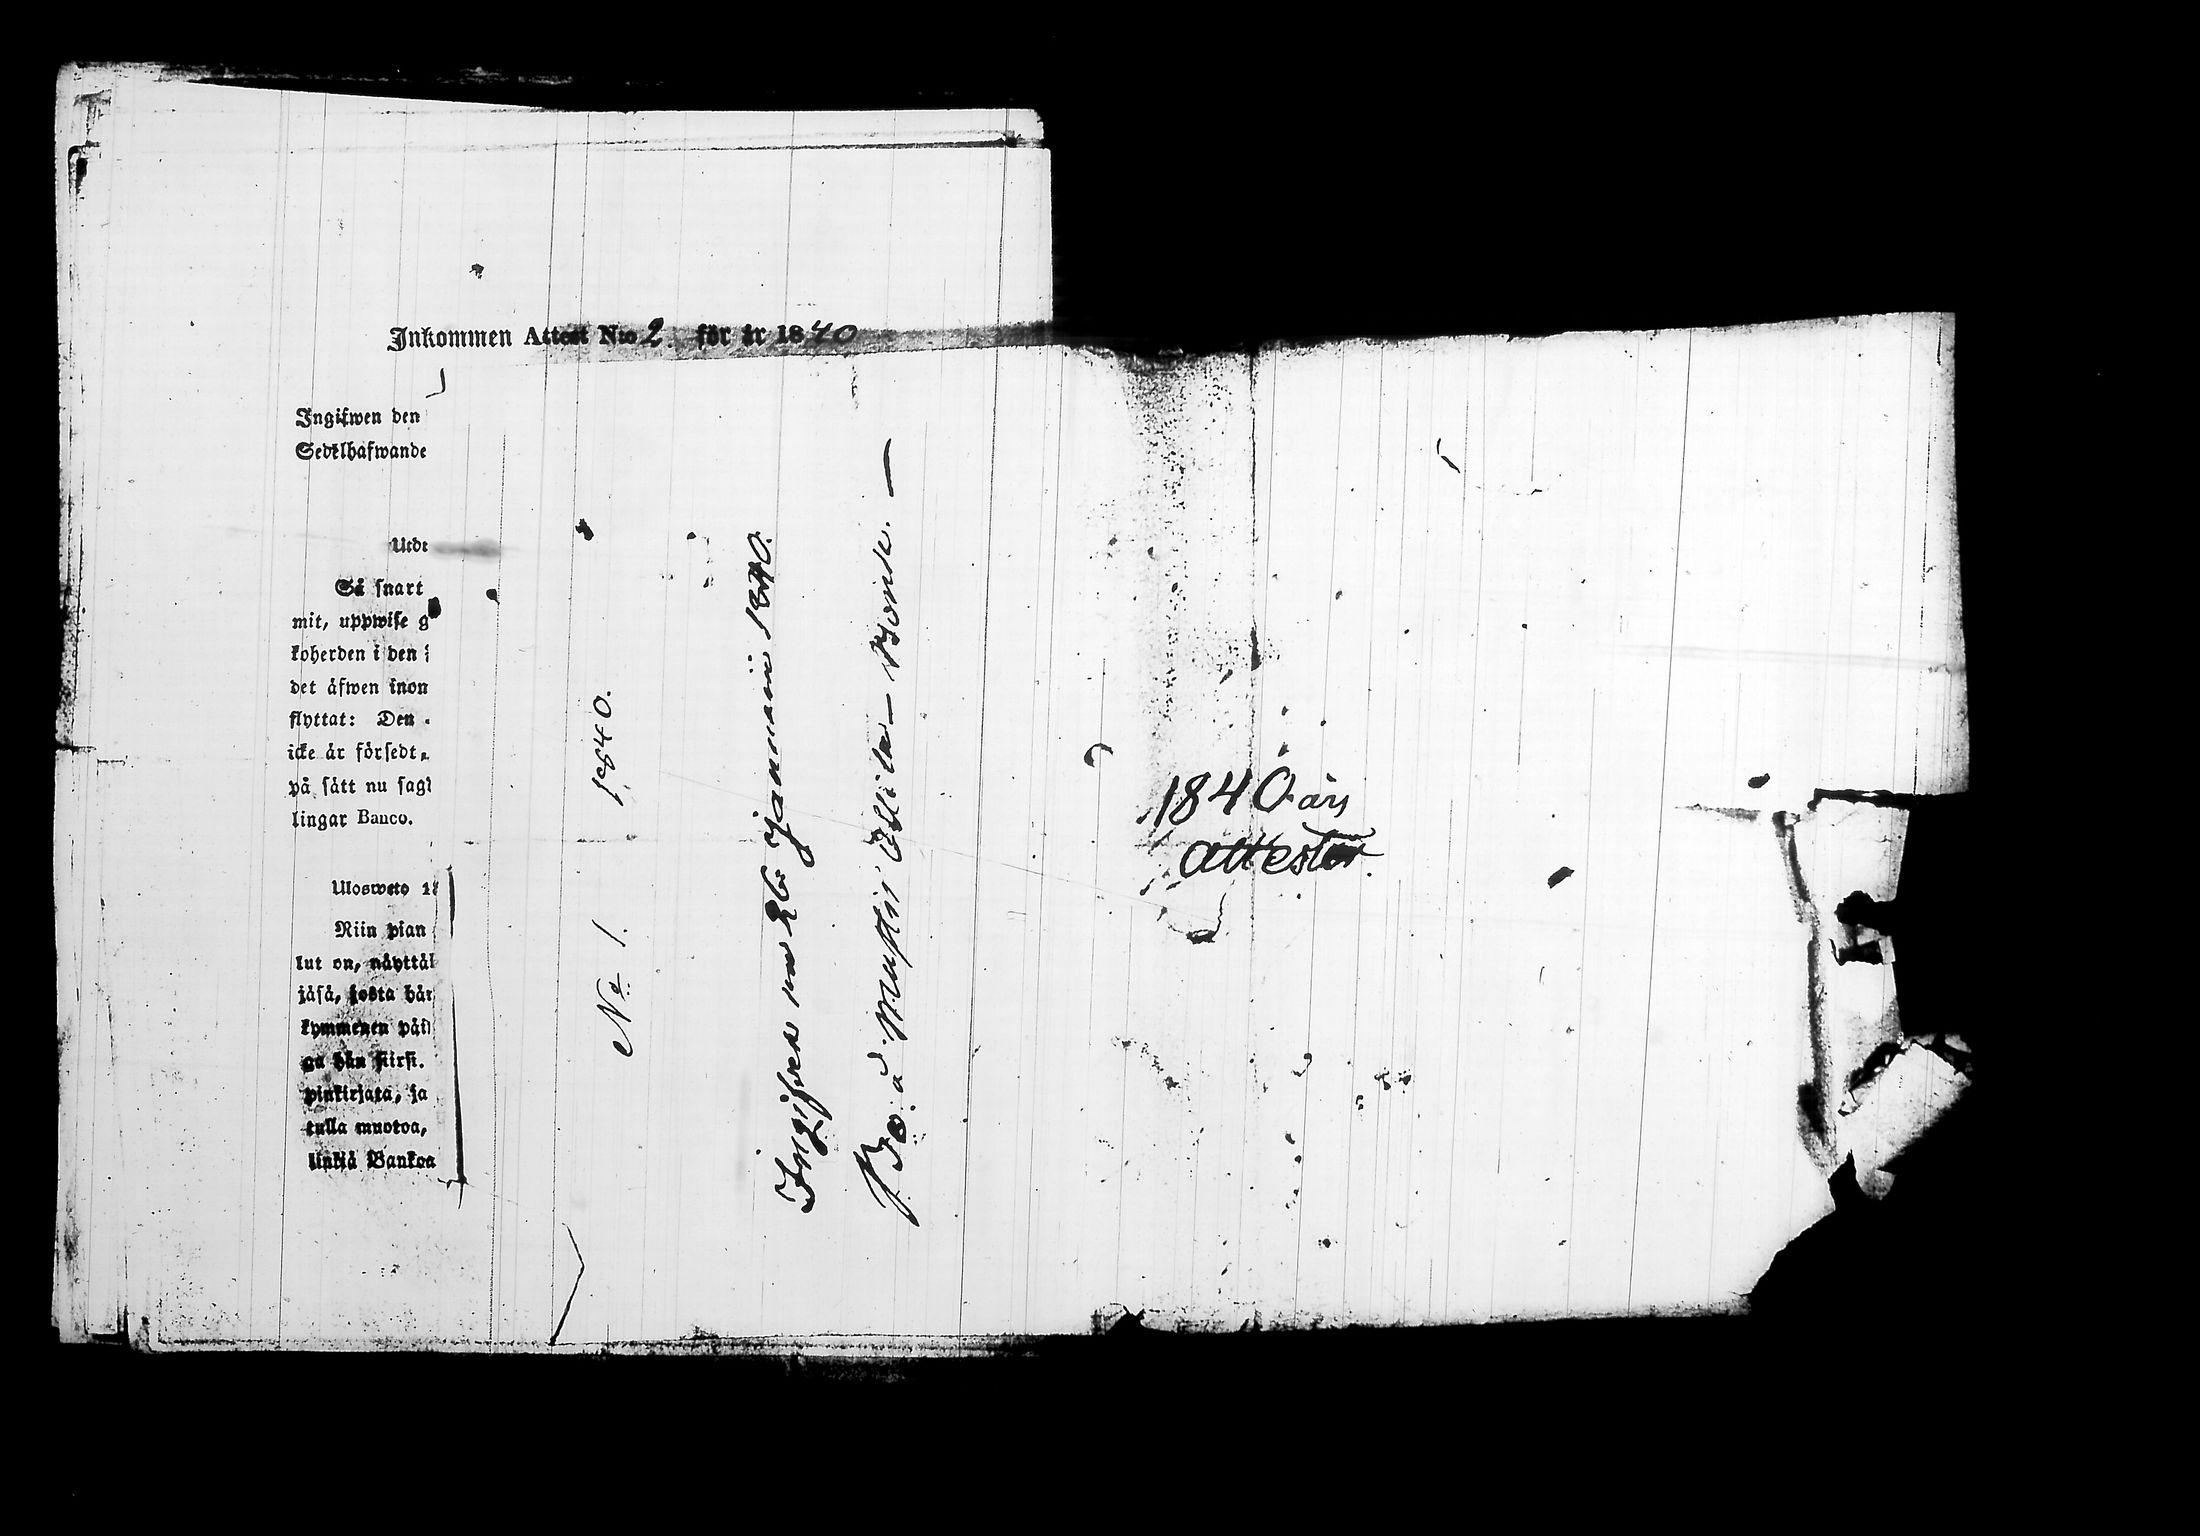 Inkommen Attest N:o 2 för år 1840
Ingifwen den
Sedelhafwande
Utdr
Så snart
mit, uppwise g
koherden i den
det äfwen inom
flyttat: Den
icke är försedt,
på sätt nu sagt
lingar Banco.
Ulosweto
Niin pian
lut on, näyttä
jäsä, josta hän
kymmenen päi
ga hän siirsi.
pinkirjata, ja
tulla muotoa,
linkiä Bankoa
No 1. 1840.
Ingifven den 26 Januarii 1840.
1840 års
attester.